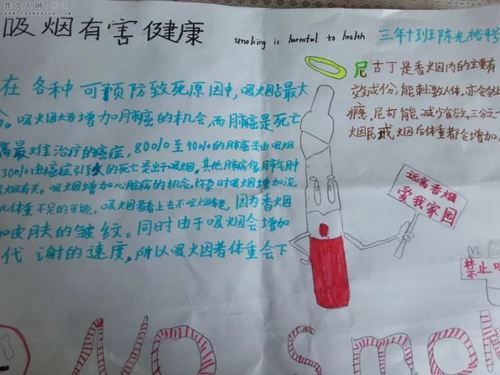 吸烟有害健康
smoking is harmful to health
三年十班陈光裕
在各种可预防致死原因中,吸烟占最大
。吸烟大大增加肺癌的机会,而肺癌是死亡
高最难治疗的癌症,80%至90%的肺癌是由吸烟
30%由癌症引致的死亡是由于吸烟。其他肺病
烟有关。吸烟增加心脏病的机会。怀孕时吸烟增加流
儿体重不足的可能。吸烟者看上去不吸烟者老,因为香烟
加皮肤的皱纹。同时由于吸烟会增加
代谢的速度,所以吸烟者体重会下
尼古丁是香烟内的主要有
效成份,能刺激人体,亦会
瘾,尼可能减少食欲,三分之一
烟民戒烟后体重都会增加
远离香烟
爱我家园
禁止吸
No smok